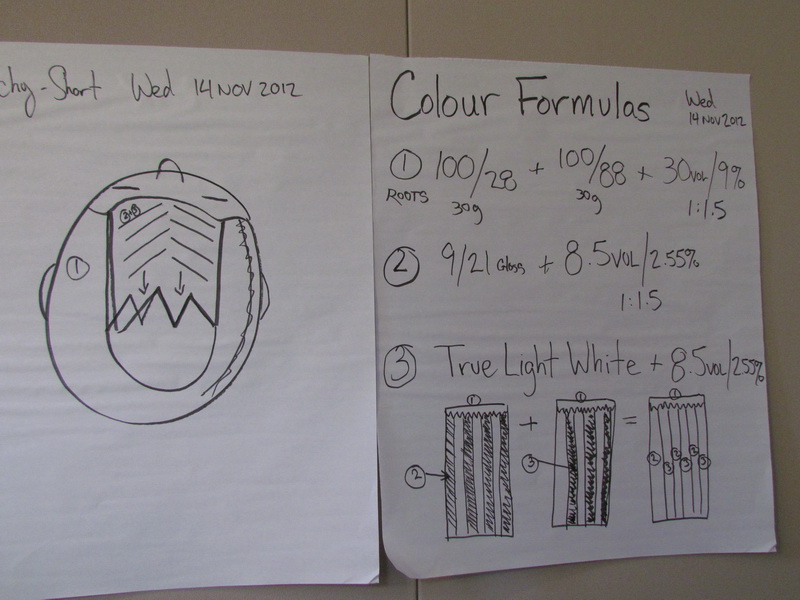 Short Wed 14 NOV 2012
①
Colour Formulas
Wed
14 NOV 2012
① 100/28 + 100/88 + 30VOL/9%
ROOTS 30g 30g 1:1.5
② 9/21 Gloss + 8.5VOL/2.55%
1:1.5
③ True Light White + 8.5VOL/2.55%
① + ① = ①
② ③ ② ③ ② ③ ② ③